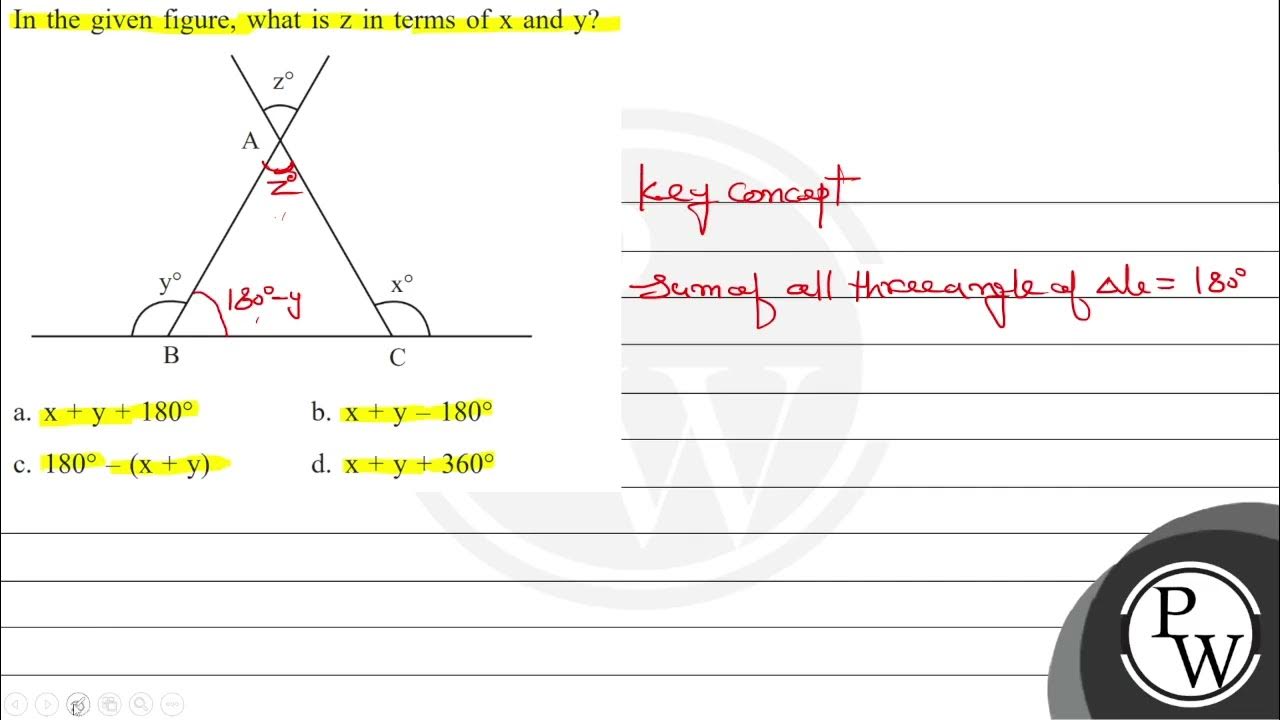 In the given figure, what is z in terms of x and y?
z°
A
z°
y°
180°-y
x°
B
C
a. x + y + 180°
b. x + y – 180°
c. 180° – (x + y)
d. x + y + 360°
key concept
Sum of all three angle of Δle = 180°
PW
P
W